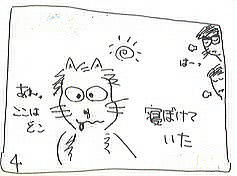 はーっ
あれ、
ここは
どこ
寝ぼけて
いた
4